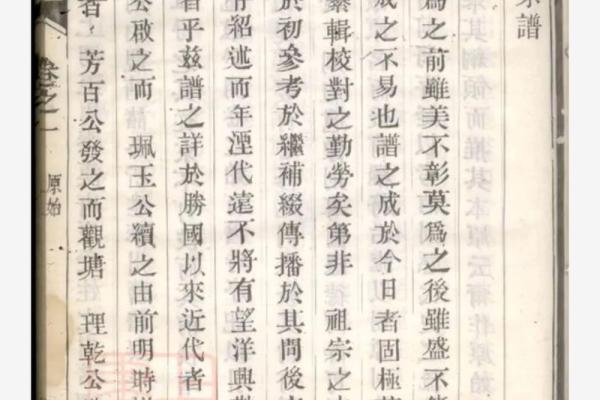 宗譜
為之前雖美不彰莫為之後雖盛不
成之不易也譜之成於今日者固極
輯校對之勤勞矣第非 祖宗之
於初參考於繼補綴傳播於其間後
紹述而年湮代遠不將有望洋興
者乎茲譜之詳於勝國以來近代者
公啟之而 珮玉公續之由前明時
者 芳百公發之而觀塘 理乾公
卷之一 原始